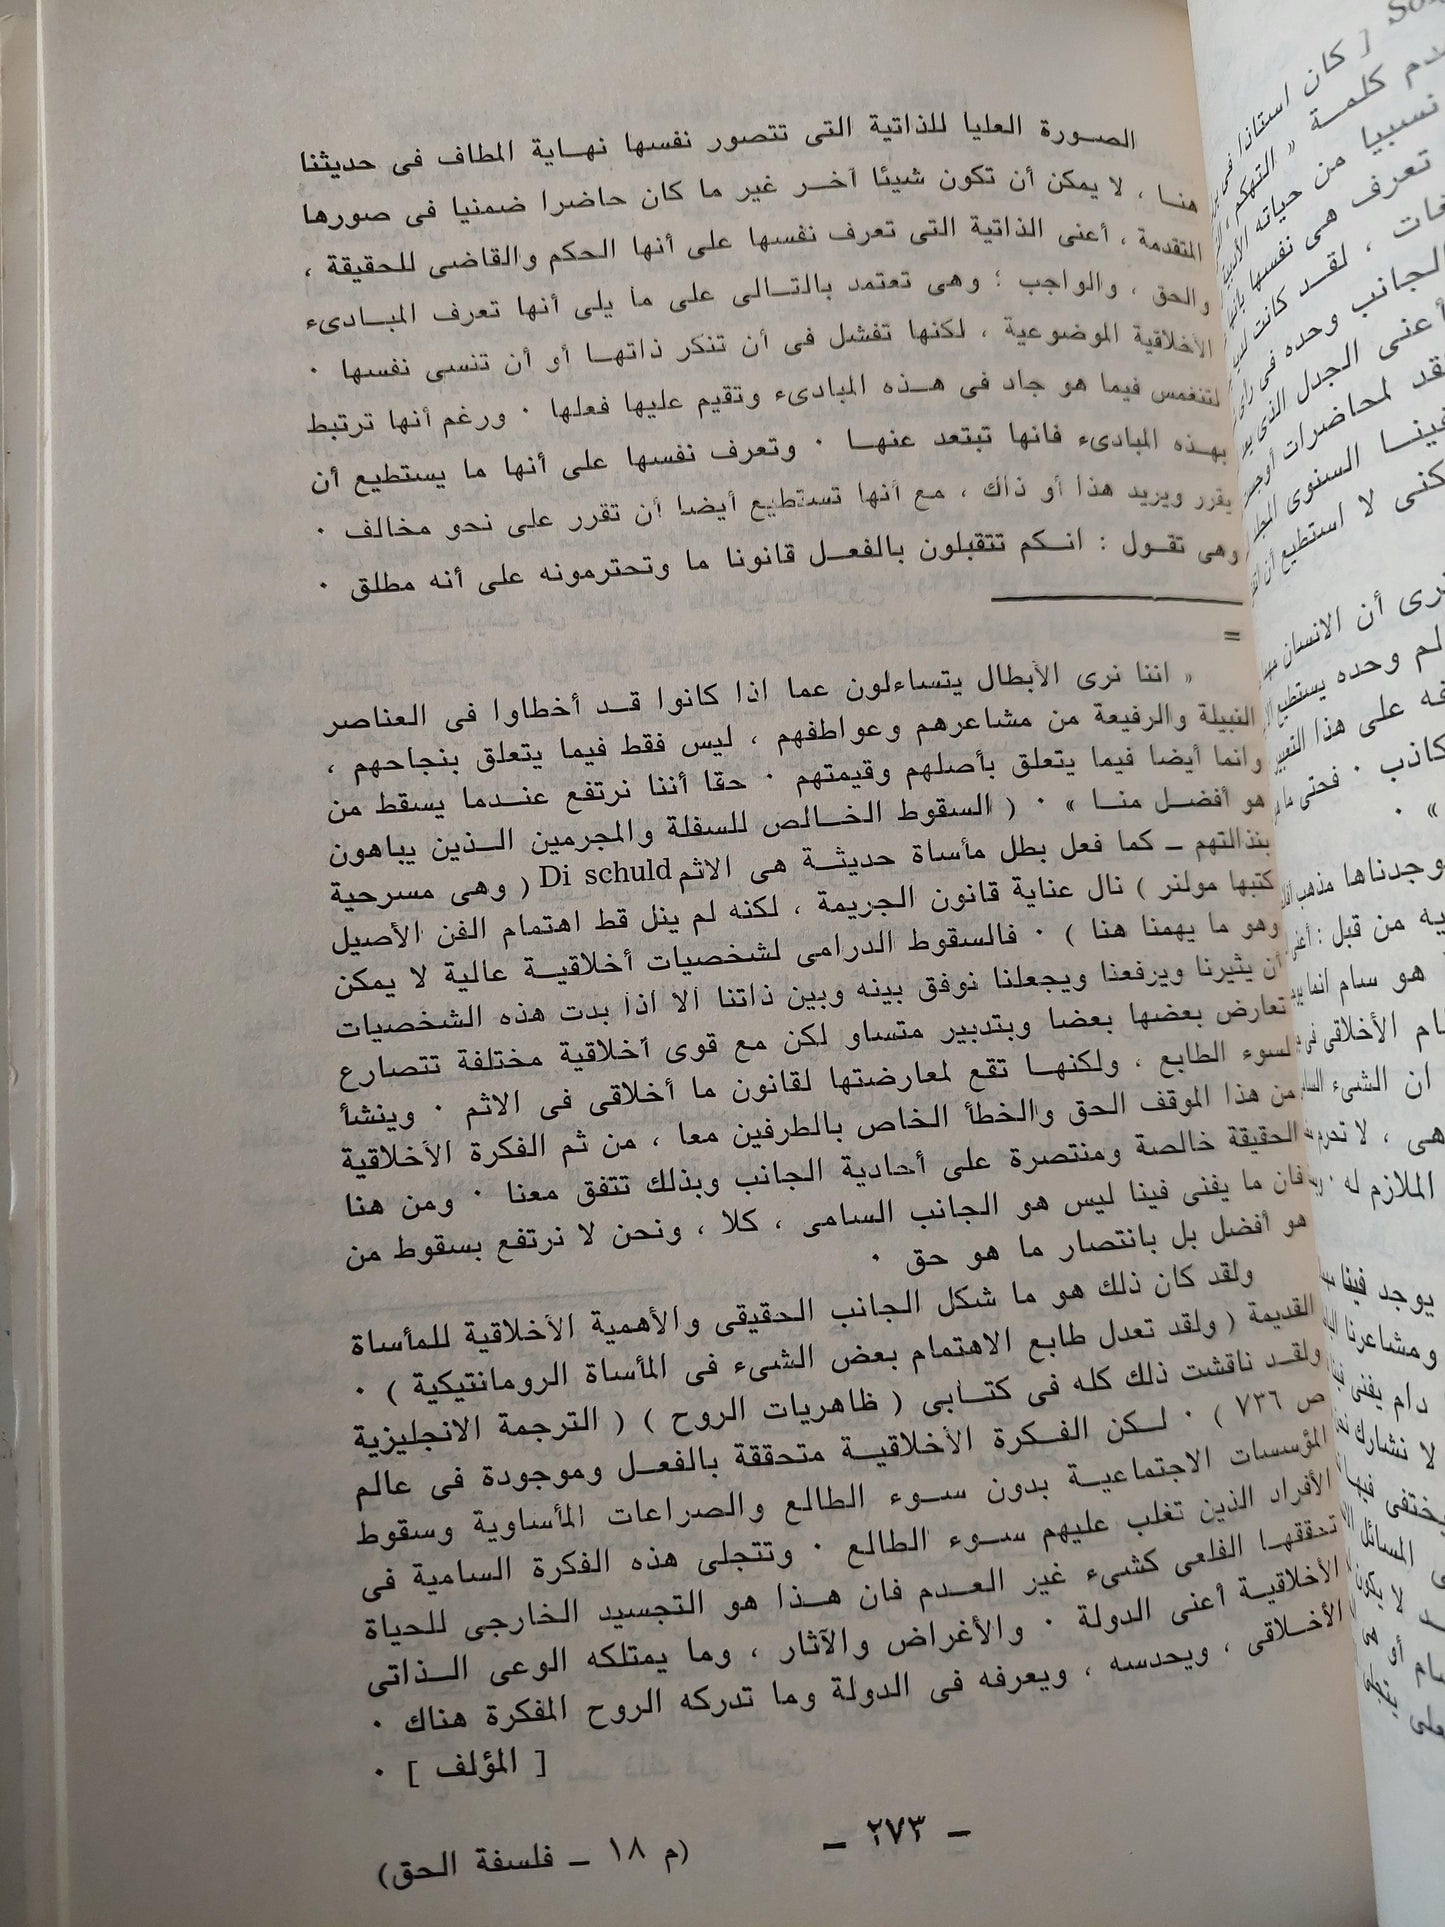 الصورة العليا للذاتية التى تتصور نفسها نهاية المطاف فى حديثنا
هنا ، لا يمكن أن تكون شيئا آخر غير ما كان حاضرا ضمنيا فى صورها
المتقدمة ، أعنى الذاتية التى تعرف نفسها على أنها الحكم والقاضى للحقيقة ،
والحق ، والواجب ؛ وهى تعتمد بالتالى على ما يلى أنها تعرف المبادىء
الأخلاقية الموضوعية ، لكنها تفشل فى أن تنكر ذاتها أو أن تنسى نفسها ٠
لتنغمس فيما هو جاد فى هذه المبادىء وتقيم عليها فعلها ٠ ورغم أنها ترتبط
بهذه المبادىء فانها تبتعد عنها ٠ وتعرف نفسها على أنها ما يستطيع أن
يقرر ويريد هذا أو ذاك ، مع أنها تستطيع أيضا أن تقرر على نحو مخالف ٠
وهى تقول : انكم تتقبلون بالفعل قانونا ما وتحترمونه على أنه مطلق ٠
=
« اننا نرى الأبطال يتساءلون عما اذا كانوا قد أخطاوا فى العناصر
النبيلة والرفيعة من مشاعرهم وعواطفهم ، ليس فقط فيما يتعلق بنجاحهم ،
وانما أيضا فيما يتعلق بأصلهم وقيمتهم ٠ حقا أننا نرتفع عندما يسقط من
هو أفضل منا » ٠ ( السقوط الخالص للسفلة والمجرمين الذين يباهون
بنذالتهم – كما فعل بطل مأساة حديثة هى الاثم Di schuld ( وهى مسرحية
كتبها مولنر ) نال عناية قانون الجريمة ، لكنه لم ينل قط اهتمام الفن الأصيل
وهو ما يهمنا هنا ) ٠ فالسقوط الدرامى لشخصيات أخلاقية عالية لا يمكن
أن يثيرنا ويرفعنا ويجعلنا نوفق بينه وبين ذاتنا الا اذا بدت هذه الشخصيات
تعارض بعضها بعضا وبتدبير متساو لكن مع قوى أخلاقية مختلفة تتصارع
لسوء الطابع ، ولكنها تقع لمعارضتها لقانون ما أخلاقى فى الاثم ٠ وينشأ
من هذا الموقف الحق والخطأ الخاص بالطرفين معا ، من ثم الفكرة الأخلاقية
الحقيقة خالصة ومنتصرة على أحادية الجانب وبذلك تتفق معنا ٠ ومن هنا
فان ما يفنى فينا ليس هو الجانب السامى ، كلا ، ونحن لا نرتفع بسقوط من
هو أفضل بل بانتصار ما هو حق ٠
ولقد كان ذلك هو ما شكل الجانب الحقيقى والأهمية الأخلاقية للمأساة
القديمة ( ولقد تعدل طابع الاهتمام بعض الشىء فى المأساة الرومانتيكية ) ٠
ولقد ناقشت ذلك كله فى كتابى ( ظاهريات الروح ) ( الترجمة الانجليزية
ص ٧٣٦ ) ٠ لكن الفكرة الأخلاقية متحققة بالفعل وموجودة فى عالم
المؤسسات الاجتماعية بدون سوء الطالع والصراعات المأساوية وسقوط
الأفراد الذين تغلب عليهم سوء الطالع ٠ وتتجلى هذه الفكرة السامية فى
تحققها الفلعى كشىء غير العدم فان هذا هو التجسيد الخارجى للحياة
الأخلاقية أعنى الدولة ٠ والأغراض والآثار ، وما يمتلكه الوعى الذاتى
الأخلاقى ، ويحدسه ، ويعرفه فى الدولة وما تدركه الروح المفكرة هناك ٠
[ المؤلف ] ٠
– ٢٧٣ –
(م ١٨ – فلسفة الحق)
كان استاذا فى
كلمة « التهكم
نسبيا من حياته
تعرف هى نفسها
، لقد كانت
الجانب وحده فى
أعنى الجدل الذى
لمحاضرات
السنوى
لا استطيع أن
أن الانسان
وحده يستطيع
على هذا
كاذب ٠ فحتى
» ٠
مذهب
من قبل : أعنى
هو سام انما
الأخلاقى فى
ان الشىء
هى ، لا
الملازم له ٠
يوجد فينا
ومشاعرنا
دام يفنى
لا نشارك
المسائل